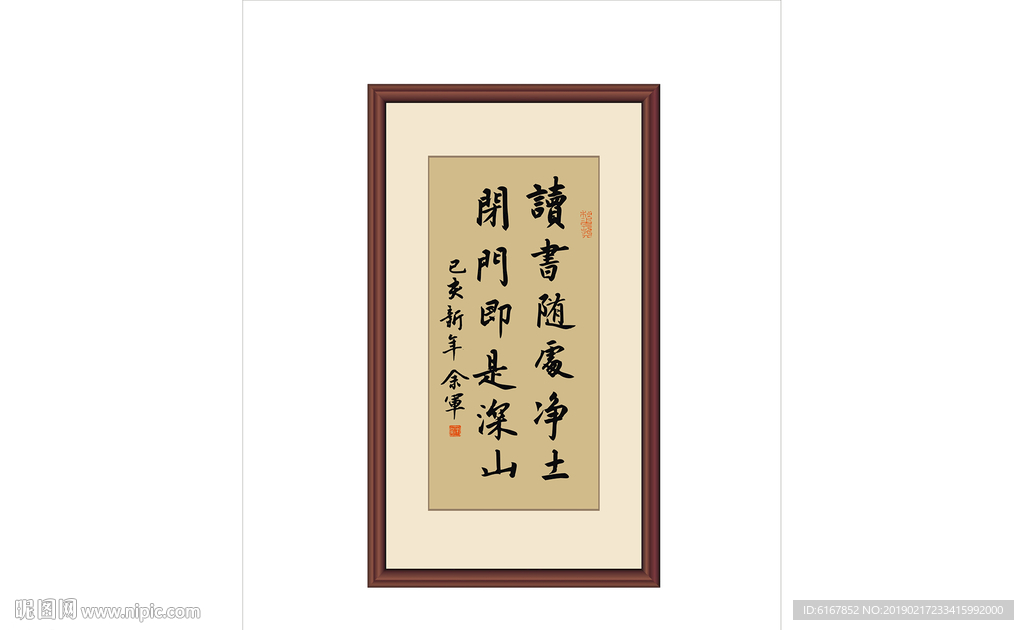 讀書随處净土
閉門即是深山
己亥新年 余軍
昵图网 www.nipic.com
ID:6167852 NO:20190217233415992000